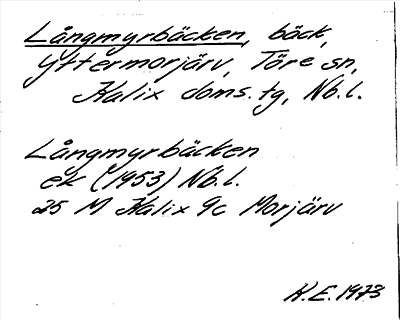 Långmyrbäcken, bäck,
Yttermorjärv, Töre sn,
Kalix doms. tg, Nb.l.
Långmyrbäcken
ek (1953) Nb.l.
25 M Kalix 9c Morjärv
K.E. 1973